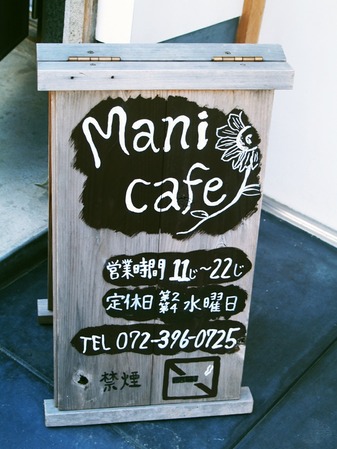 Mani
cafe
営業時間 11じ〜22じ
定休日 第2 第4 水曜日
TEL 072-396-0725
禁煙